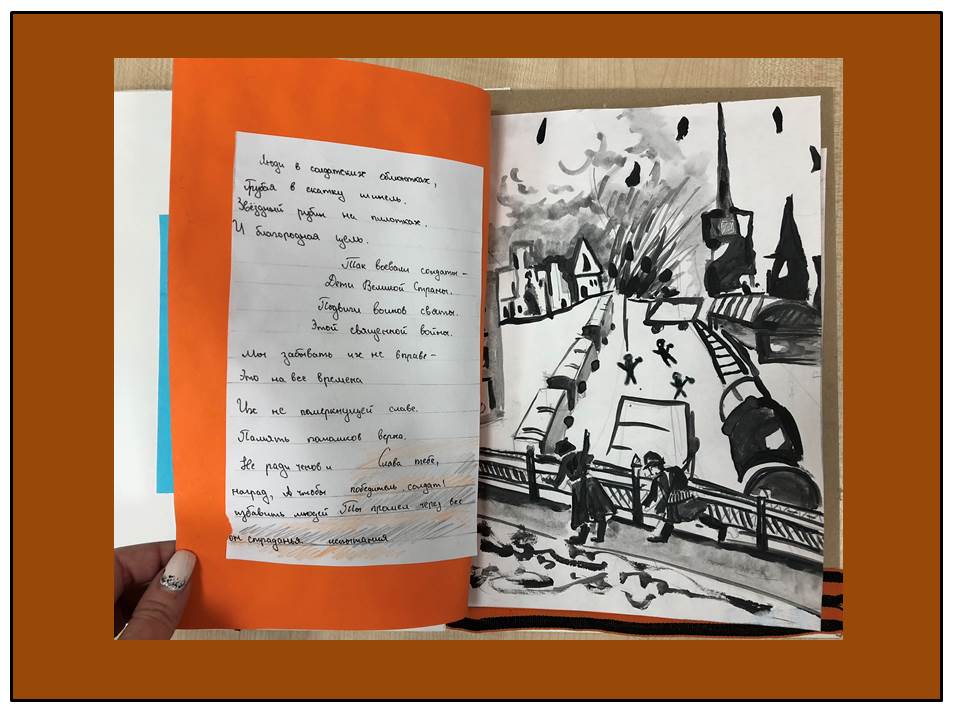 Люди в солдатских обмотках,
Грубая в скатку шинель.
Звёздный рубин на пилотках.
И благородная цель.
Так воевали солдаты –
Дети Великой Страны.
Подвиги воинов святы.
Этой священной войны.
Мы забывать их не вправе –
Это на все времена
Их не померкнущей славе.
Память потомков верна.
Не ради чинов и Слава тебе,
наград, А чтобы победитель солдат!
избавить людей Ты прошел через все
от страданья испытания